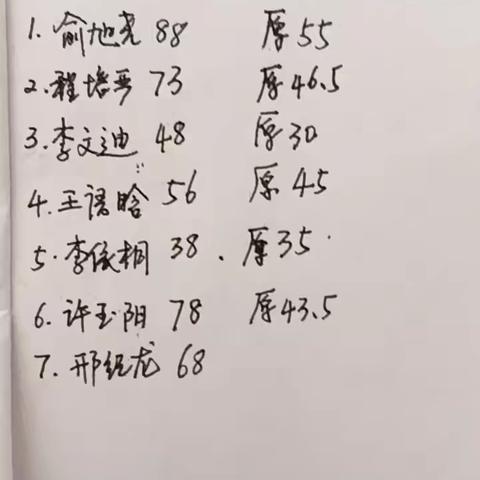 1. 俞旭尧 88 原55
2. 程培晋 73 原46.5
3. 李文迪 48 原30
4. 王语晗 56 原 45
5. 李依桐 38 . 原35
6. 许玉阳 78 原43.5
7. 邢纪龙 68